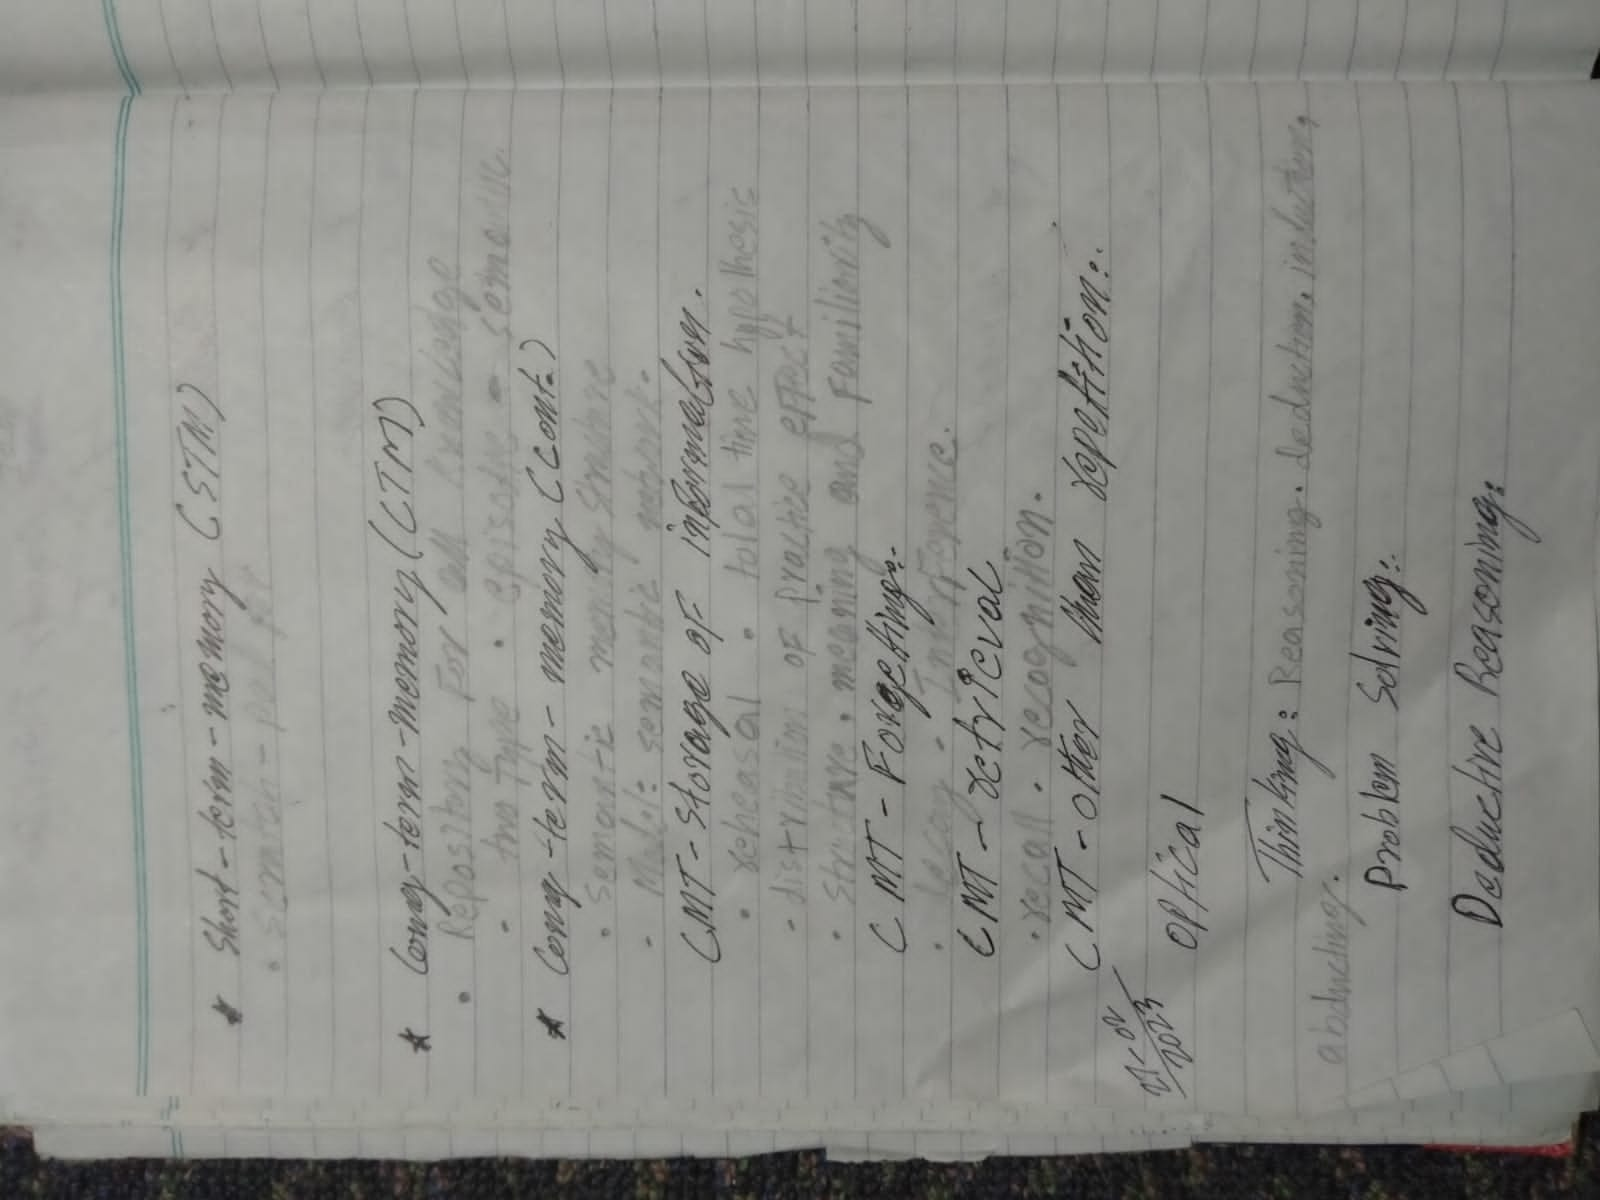 * Short-term-memory (STM)
• scratch-pad for
* Long-term-memory (LTM)
• Repository For all knowledge
• two Type • episodic - semantic
* Long-term-memory (cont.)
• Semantic memory structure
• Model: semantic network.
LMT-Storage of information.
• reheasal • total time hypothesis
• distribution of practice effect
• structure • meaning and Familiarity
LMT-Forgetting:
• decay • Interference.
LMT-retrieval
• recall • recognition.
LMT-other than repetition:
2023
optical
Thinking: Reasoning. deduction, induction,
abducting.
Problem Solving:
Deductive Reasoning: